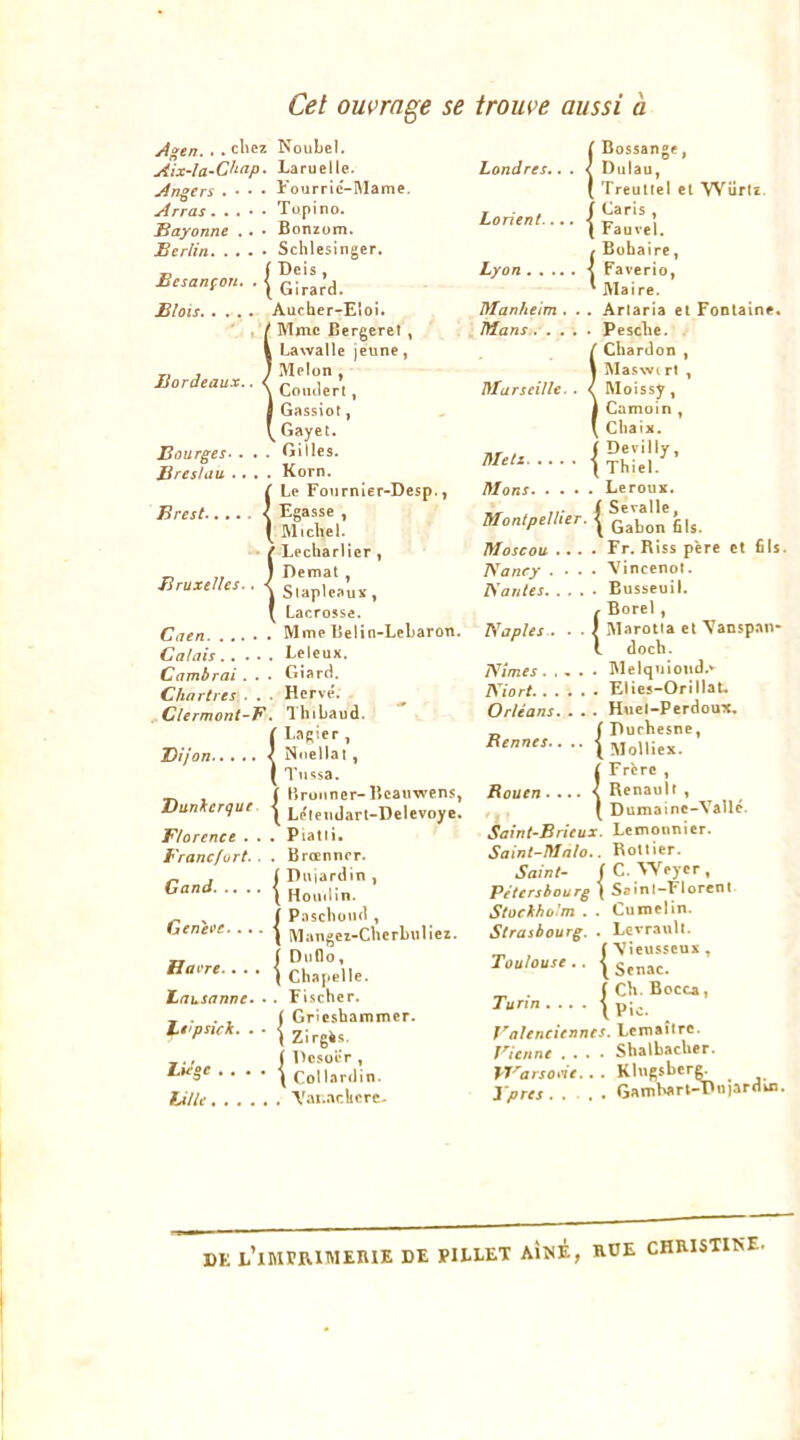 Cet ouvrage se trouve aussi à
Agen. . . chez Noubel.
Aix-la-Chap. Laruelle.
Angers . . . . Fourrié-Mame.
Arras . . . . . Topino.
Bayonne . . . Bonzom.
Berlin. . . . . Schlesinger.
Besançon. . { Deis,
Girard.
Blois. . . . . Aucher-Eloi.
Bordeaux. . { Mme Bergeret,
Lawalle jeune,
Melon,
Coudert,
Gassiot,
Gayet.
Bourges. . . . Gilles.
Breslau . . . . Korn.
Brest. . . . . { Le Fournier-Desp.,
Egasse,
Michel.
Bruxelles. . { Lecharlier,
Demat,
Stapleaux,
Lacrosse.
Caen. . . . . . Mme Belin-Lebaron.
Calais . . . . . Leleux.
Cambrai . . . Giard.
Chartres . . . Hervé.
Clermont-F. Thibaud.
Dijon. . . . . { Lagier,
Noellat,
Tussa.
Dunkerque { Bronner-Beauwens,
Létendart-Delevoye.
Florence . . . Piatti.
Francfort. . . Brœnner.
Gand. . . . . { Dujardin,
Houdin.
Genève. . . . { Paschoud,
Mangez-Cherbuliez.
Havre. . . . { Duflo,
Chapelle.
Lausanne. . . Fischer.
Leipsick. . . { Grieshammer.
Zirgès.
Liége . . . . { Desoër,
Collardin.
Lille . . . . . . Vanackere.
Londres. . . { Bossange,
Dulau,
Treuttel et Würtz.
Lorient. . . . { Caris,
Fauvel.
Lyon . . . . . { Bohaire,
Faverio,
Maire.
Manheim . . . Artaria et Fontaine.
Mans . . . . . Pesche.
Marseille. . { Chardon,
Maswert,
Moissy,
Camoin,
Chaix.
Metz. . . . . { Devilly,
Thiel.
Mons. . . . . Leroux.
Montpellier. { Sevalle,
Gabon fils.
Moscou . . . . Fr. Riss père et fils.
Nancy . . . . Vincenot.
Nantes. . . . . Busseuil.
Naples . . . { Borel,
Marotta et Vanspan-
doch.
Nîmes . . . . . Melquiond.
Niort. . . . . . Elies-Orillat.
Orléans. . . . Huet-Perdoux.
Rennes. . . . { Duchesne,
Molliex.
Rouen . . . . { Frère,
Renault,
Dumaine-Vallé.
Saint-Brieux. Lemonnier.
Saint-Malo. . Rottier.
Saint- Pétersbourg { C. Weyer,
Saint-Florent
Stockholm . . Cumelin.
Strasbourg. . Levrault.
Toulouse . . { Vieusseux,
Senac.
Turin . . . . { Ch. Bocca,
Pic.
Valenciennes. Lemaître.
Vienne . . . . Shalbacher.
Warsovie. . . Klugsberg.
Ypres . . . . Gambart-Dujardin.
DE L'IMPRIMERIE DE PILLET AÎNÉ, RUE CHRISTINE.